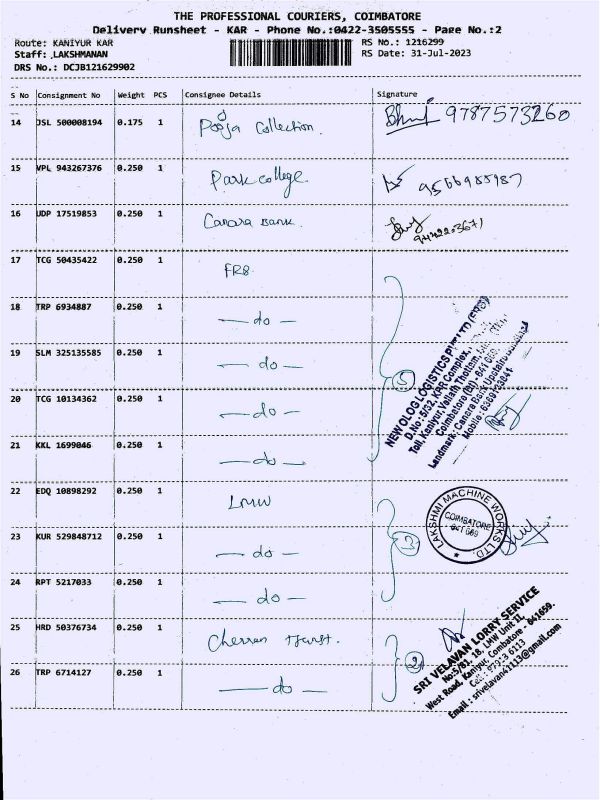 THE PROFESSIONAL COURIERS, COIMBATORE
Delivery Runsheet - KAR - Phone No.:0422-3505555 - Page No.:2
Route: KANIYUR KAR RS No.: 1216299
Staff: LAKSHMANAN RS Date: 31-Jul-2023
DRS No.: DCJB121629902
S No Consignment No Weight PCS Consignee Details Signature
14 JSL 500008194 0.175 1 Pooja Collection. 9787573260
15 VPL 943267376 0.250 1 Park college 9566985987
16 UDP 17519853 0.250 1 Canara Bank.
17 TCG 50435422 0.250 1 FR8
18 TRP 6934887 0.250 1 — do —
19 SLM 325135585 0.250 1 — do —
20 TCG 10134362 0.250 1 — do —
21 KKL 1699046 0.250 1 — do —
5
NEW OLOG LOGISTICS PVT LTD
D.No: 5/32, KPR Complex,
Toll, Kaniyur, Vellath Thottam,
Coimbatore (Dt) - 641 659.
Landmark: Canara Bank Upstairs
Mobile:
22 EDQ 10898292 0.250 1 LMW
23 KUR 529848712 0.250 1 — do —
24 RPT 5217033 0.250 1 — do —
3
LAKSHMI MACHINE WORKS LTD.
COIMBATORE
641 659
25 HRD 50376734 0.250 1 Cherran
26 TRP 6714127 0.250 1 — do —
2
SRI VELAVAN LORRY SERVICE
No:5/81, 18, LMW Unit II,
West Road, Kaniyur, Coimbatore - 641659.
Cell :
Email : srivelavan41113@gmail.com